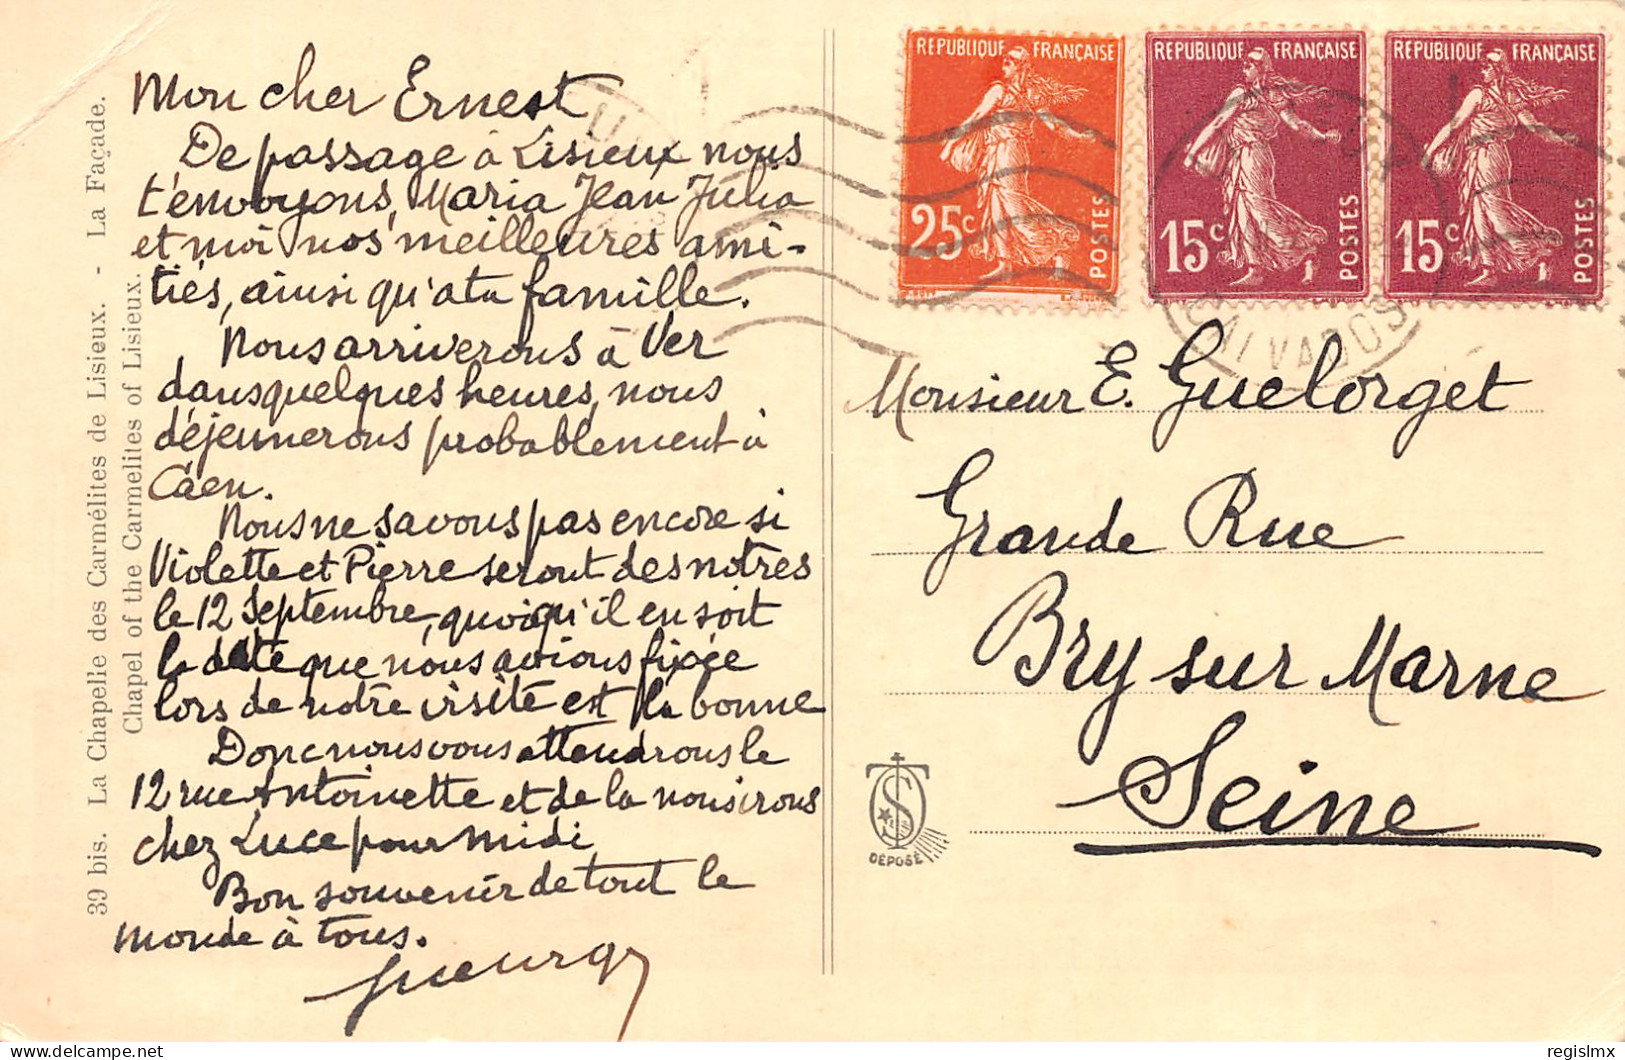 39 bis. La Chapelle des Carmélites de Lisieux. - La Façade.
Chapel of the Carmelites of Lisieux.
Mon cher Ernest
De passage à Lisieux nous
t'envoyons, Maria Jean Julia
et moi nos meilleures ami-
tiés, ainsi qu'a ta famille.
Nous arriverons à Ver
dans quelques heures, nous
déjeunerons probablement à
Caen.
Nous ne savons pas encore si
Violette et Pierre seront des notres
le 12 Septembre, quoiqu'il en soit
la date que nous avions fixée
lors de notre visite est la bonne
Donc nous vous attendrons le
12 rue Antoinette et de la nous irons
chez Luce pour midi
Bon souvenir de tout le
monde à tous.
REPUBLIQUE FRANÇAISE
25c
POSTES
REPUBLIQUE FRANÇAISE
15c
POSTES
REPUBLIQUE FRANÇAISE
15c
POSTES
CALVADOS
Monsieur E. Guelorget
Grande Rue
Bry sur Marne
Seine
DÉPOSÉ
DELCAMPE.NET
regislmx